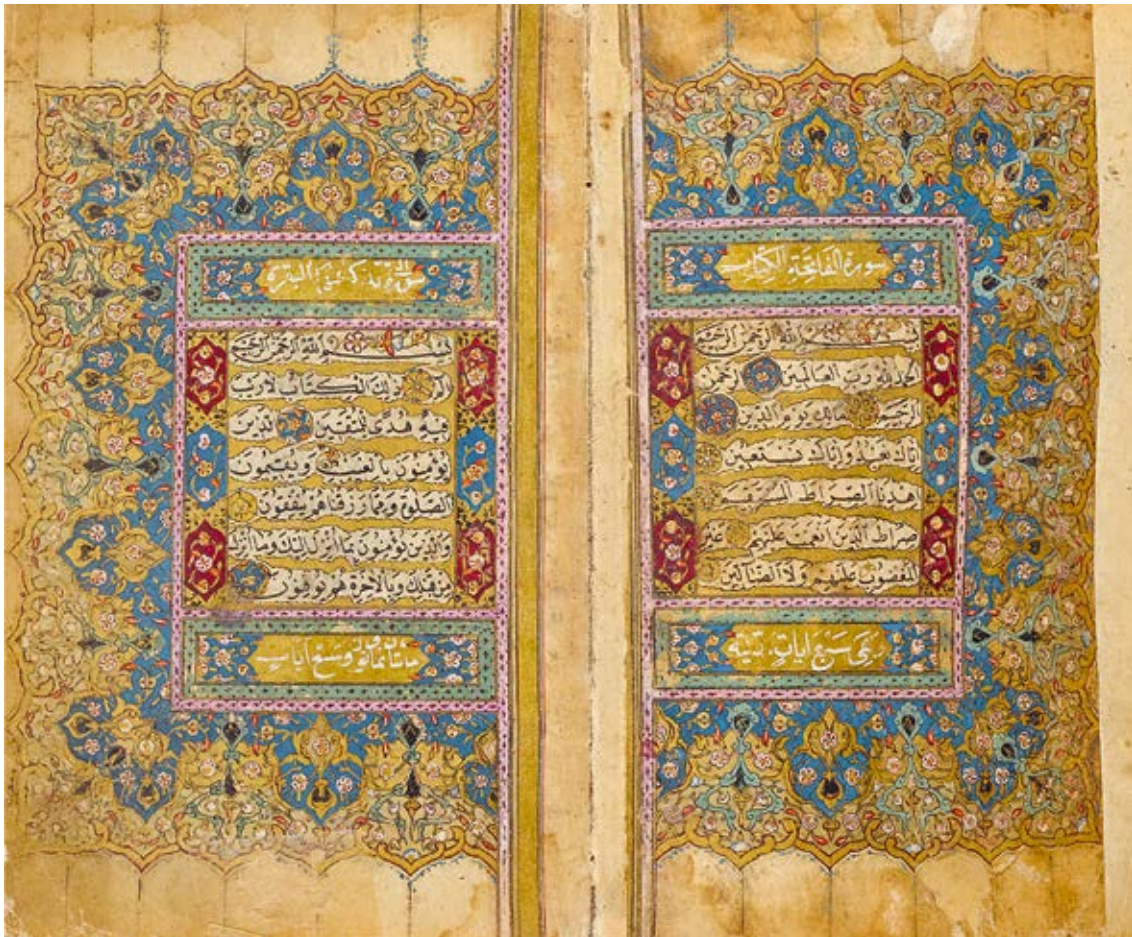 سورة الفاتحة الكتاب
بسم الله الرحمن الرحيم
الحمد لله رب العالمين الرحمن
الرحيم مالك يوم الدين
اياك نعبد واياك نستعين
اهدنا الصراط المستقيم
صراط الذين انعمت عليهم غير
المغضوب عليهم ولا الضآلين
وهى سبع ايات
سورة البقرة
بسم الله الرحمن الرحيم
الم ذلك الكتاب لا ريب
فيه هدى للمتقين الذين
يؤمنون بالغيب ويقيمون
الصلوة ومما رزقناهم ينفقون
والذين يؤمنون بما انزل اليك وما انزل
من قبلك وبالاخرة هم يوقنون
مائتان وثمانون وسبع ايات